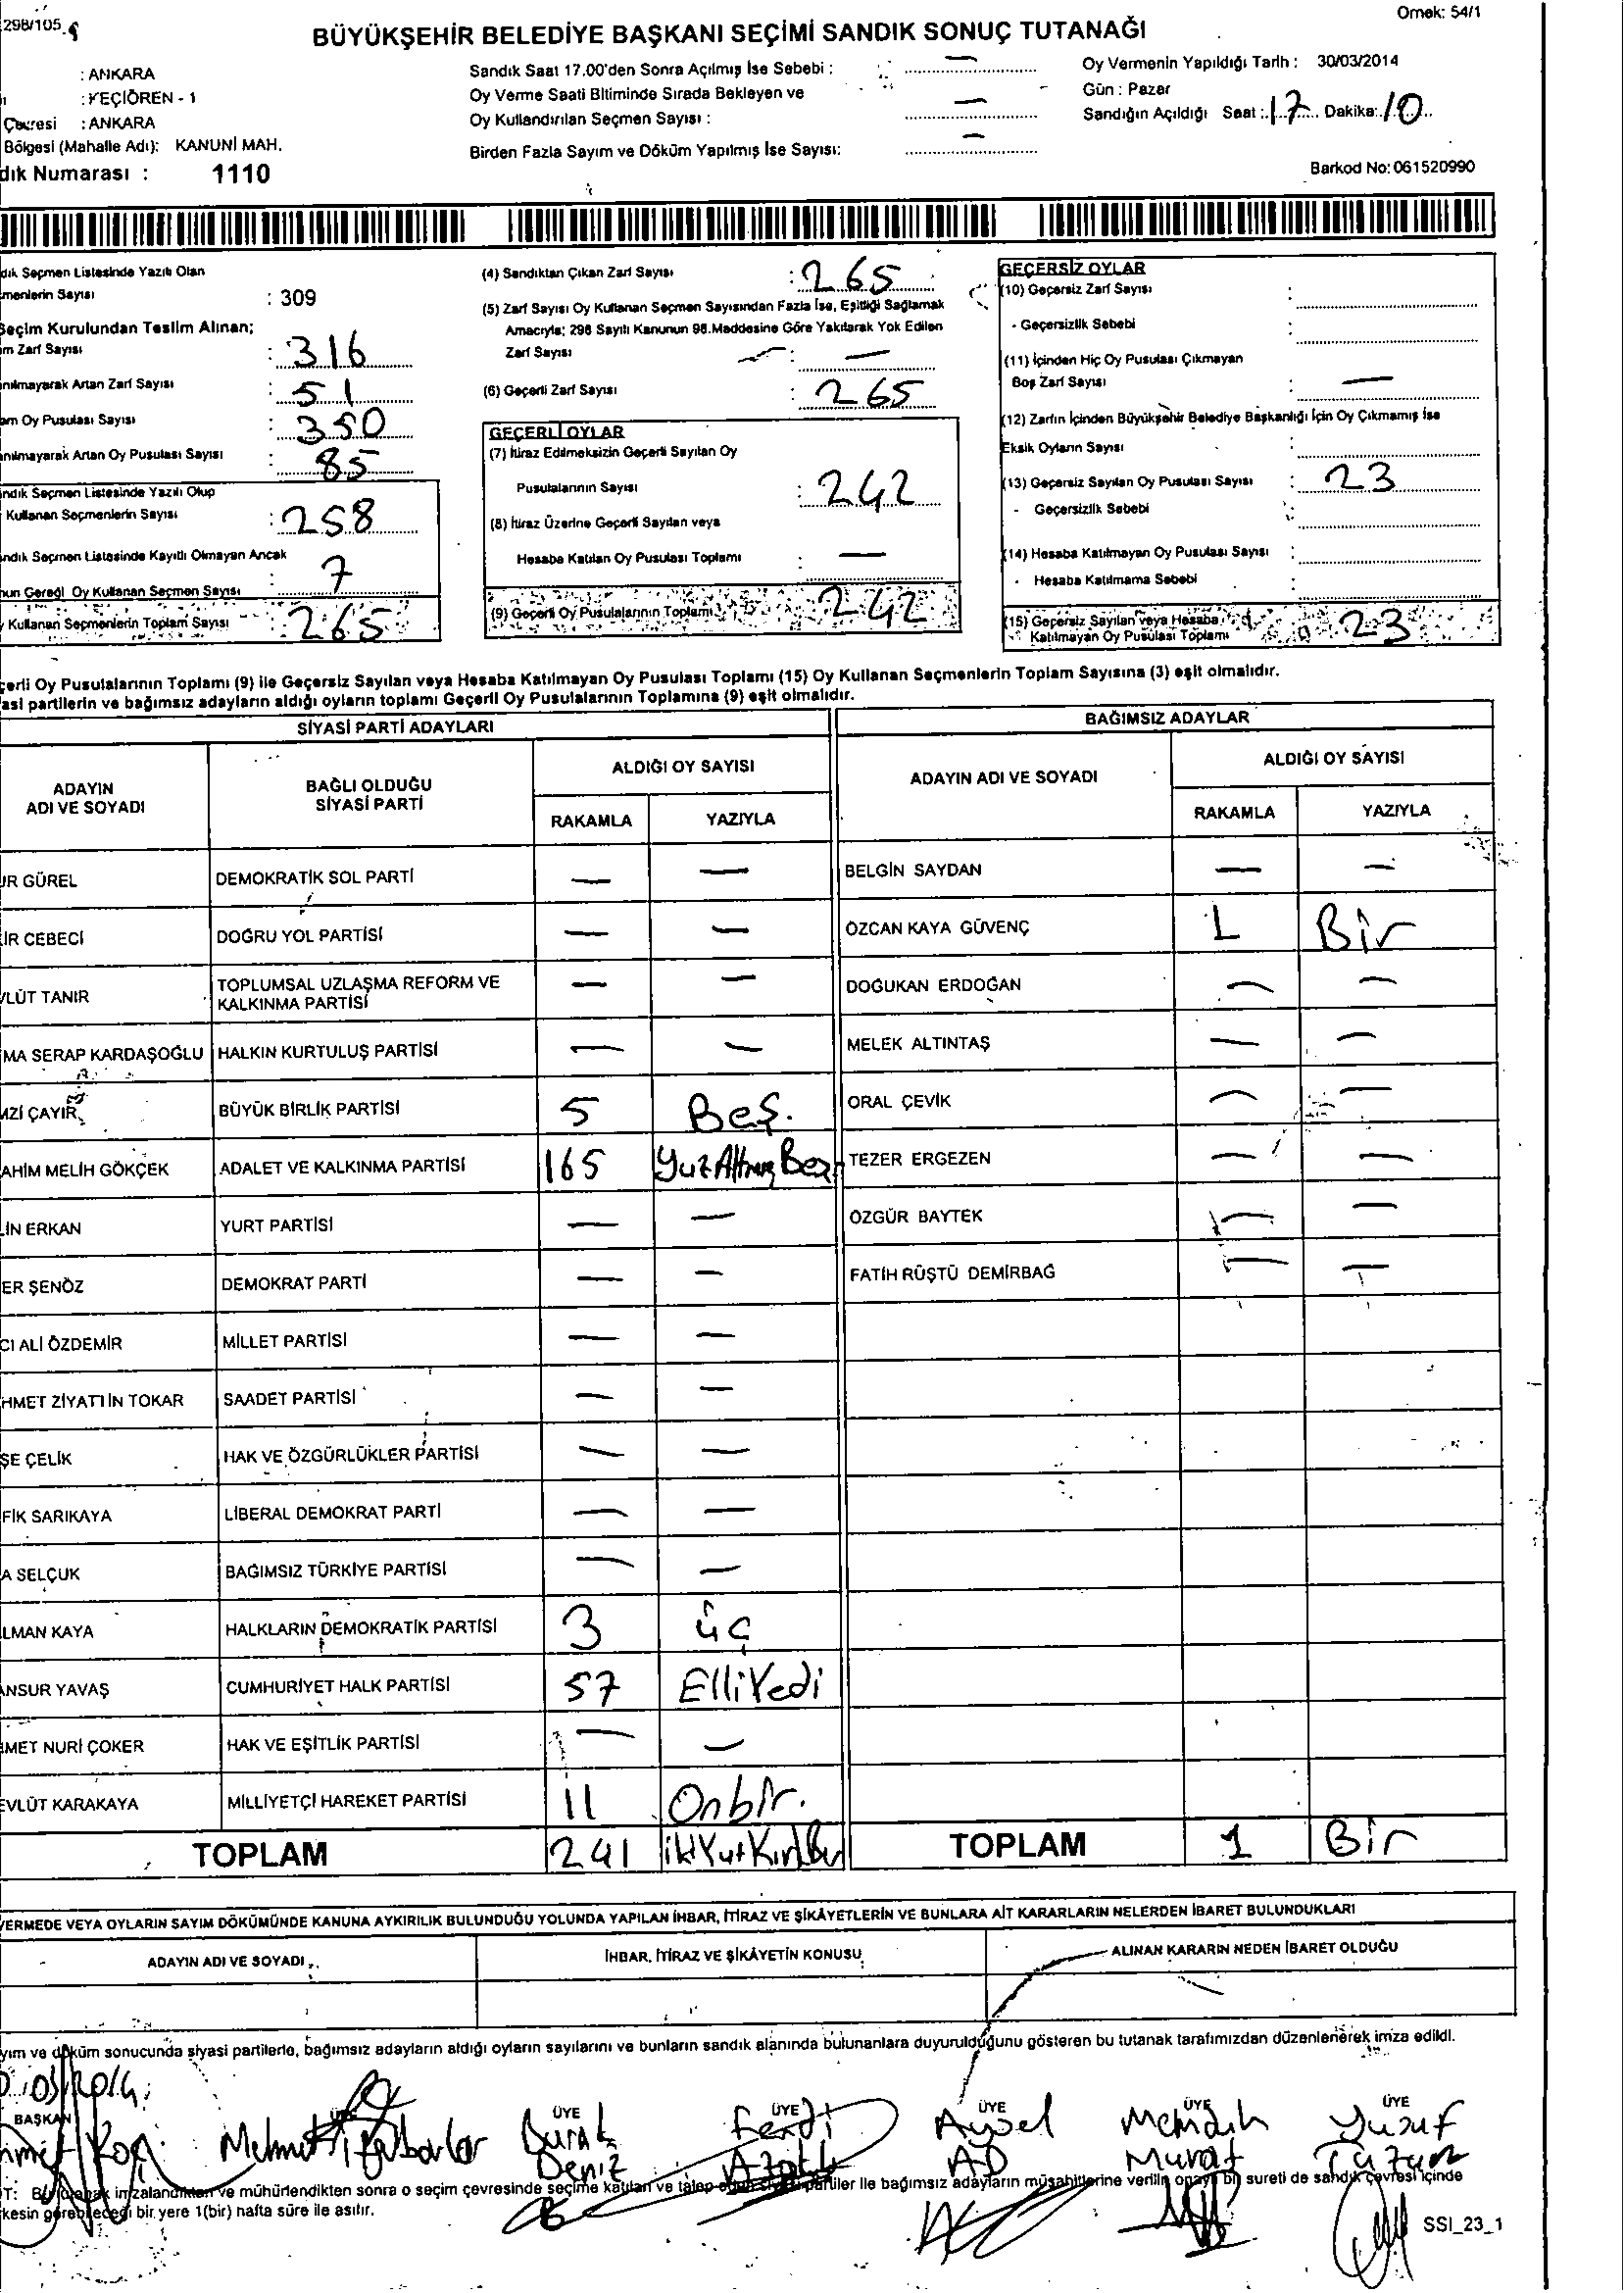 298/105
Örnek: 54/1
BÜYÜKŞEHİR BELEDİYE BAŞKANI SEÇİMİ SANDIK SONUÇ TUTANAĞI
: ANKARA
: KEÇİÖREN - 1
Çevresi : ANKARA
Bölgesi (Mahalle Adı): KANUNİ MAH.
dık Numarası : 1110
Sandık Saat 17.00'den Sonra Açılmış İse Sebebi : —
Oy Verme Saati Bitiminde Sırada Bekleyen ve
Oy Kullandırılan Seçmen Sayısı : —
Birden Fazla Sayım ve Döküm Yapılmış İse Sayısı: —
Oy Vermenin Yapıldığı Tarih : 30/03/2014
Gün : Pazar
Sandığın Açıldığı Saat : 17 Dakika: 10
Barkod No: 061520990
dık Seçmen Listesinde Yazılı Olan
menlerin Sayısı : 309
Seçim Kurulundan Teslim Alınan;
m Zarf Sayısı : 316
nılmayarak Artan Zarf Sayısı : 51
am Oy Pusulası Sayısı : 350
anılmayarak Artan Oy Pusulası Sayısı : 85
ndık Seçmen Listesinde Yazılı Olup
Kullanan Seçmenlerin Sayısı : 258
ndık Seçmen Listesinde Kayıtlı Olmayan Ancak
nun Gereği Oy Kullanan Seçmen Sayısı : 7
Kullanan Seçmenlerin Toplam Sayısı 265
(4) Sandıktan Çıkan Zarf Sayısı : 265
(5) Zarf Sayısı Oy Kullanan Seçmen Sayısından Fazla İse, Eşitliği Sağlamak
Amacıyla; 298 Sayılı Kanunun 98.Maddesine Göre Yakılarak Yok Edilen
Zarf Sayısı : —
(6) Geçerli Zarf Sayısı : 265
GEÇERLİ OYLAR
(7) İtiraz Edilmeksizin Geçerli Sayılan Oy
Pusulalarının Sayısı : 242
(8) İtiraz Üzerine Geçerli Sayılan veya
Hesaba Katılan Oy Pusulası Toplamı : —
(9) Geçerli Oy Pusulalarının Toplamı : 242
GEÇERSİZ OYLAR
(10) Geçersiz Zarf Sayısı :
- Geçersizlik Sebebi :
(11) İçinden Hiç Oy Pusulası Çıkmayan
Boş Zarf Sayısı : —
(12) Zarfın İçinden Büyükşehir Belediye Başkanlığı İçin Oy Çıkmamış İse
Eksik Oyların Sayısı :
(13) Geçersiz Sayılan Oy Pusulası Sayısı : 23
- Geçersizlik Sebebi :
(14) Hesaba Katılmayan Oy Pusulası Sayısı :
- Hesaba Katılmama Sebebi :
(15) Geçersiz Sayılan veya Hesaba
Katılmayan Oy Pusulası Toplamı 23
çerli Oy Pusulalarının Toplamı (9) ile Geçersiz Sayılan veya Hesaba Katılmayan Oy Pusulası Toplamı (15) Oy Kullanan Seçmenlerin Toplam Sayısına (3) eşit olmalıdır.
asi partilerin ve bağımsız adayların aldığı oyların toplamı Geçerli Oy Pusulalarının Toplamına (9) eşit olmalıdır.
SİYASİ PARTİ ADAYLARI
ADAYIN ADI VE SOYADI
BAĞLI OLDUĞU SİYASİ PARTİ
ALDIĞI OY SAYISI
RAKAMLA YAZIYLA
UR GÜREL DEMOKRATİK SOL PARTİ — —
İR CEBECİ DOĞRU YOL PARTİSİ — —
VLÜT TANIR TOPLUMSAL UZLAŞMA REFORM VE KALKINMA PARTİSİ — —
MA SERAP KARDAŞOĞLU HALKIN KURTULUŞ PARTİSİ — —
MZİ ÇAYIR BÜYÜK BİRLİK PARTİSİ 5 Beş.
AHİM MELİH GÖKÇEK ADALET VE KALKINMA PARTİSİ 165 YüzAltmışBeş
İN ERKAN YURT PARTİSİ — —
ER ŞENÖZ DEMOKRAT PARTİ — —
CI ALİ ÖZDEMİR MİLLET PARTİSİ — —
HMET ZİYATTİN TOKAR SAADET PARTİSİ — —
ŞE ÇELİK HAK VE ÖZGÜRLÜKLER PARTİSİ — —
FİK SARIKAYA LİBERAL DEMOKRAT PARTİ — —
A SELÇUK BAĞIMSIZ TÜRKİYE PARTİSİ — —
LMAN KAYA HALKLARIN DEMOKRATİK PARTİSİ 3 üç
ANSUR YAVAŞ CUMHURİYET HALK PARTİSİ 57 ElliYedi
MET NURİ ÇOKER HAK VE EŞİTLİK PARTİSİ — —
EVLÜT KARAKAYA MİLLİYETÇİ HAREKET PARTİSİ 11 Onbir.
TOPLAM 241 ikiYüzKırkBir
BAĞIMSIZ ADAYLAR
ADAYIN ADI VE SOYADI
ALDIĞI OY SAYISI
RAKAMLA YAZIYLA
BELGİN SAYDAN — —
ÖZCAN KAYA GÜVENÇ 1 Bir
DOĞUKAN ERDOĞAN — —
MELEK ALTINTAŞ — —
ORAL ÇEVİK — —
TEZER ERGEZEN — —
ÖZGÜR BAYTEK — —
FATİH RÜŞTÜ DEMİRBAĞ — —
TOPLAM 1 Bir
VERMEDE VEYA OYLARIN SAYIM DÖKÜMÜNDE KANUNA AYKIRILIK BULUNDUĞU YOLUNDA YAPILAN İHBAR, İTİRAZ VE ŞİKÂYETLERİN VE BUNLARA AİT KARARLARIN NELERDEN İBARET BULUNDUKLARI
ADAYIN ADI VE SOYADI
İHBAR, İTİRAZ VE ŞİKÂYETİN KONUSU
ALINAN KARARIN NEDEN İBARET OLDUĞU
yım ve döküm sonucunda siyasi partilerle, bağımsız adayların aldığı oyların sayılarını ve bunların sandık alanında bulunanlara duyurulduğunu gösteren bu tutanak tarafımızdan düzenlenerek imza edildi.
BAŞKAN ÜYE ÜYE ÜYE ÜYE ÜYE
Mehmet
Burak Deniz
Ferdi
Aysel AD
Memduh Murat
Yusuf
T: Bu tutanak imzalandıktan ve mühürlendikten sonra o seçim çevresinde seçime katılan ve talep eden siyasi partiler ile bağımsız adayların müşahitlerine verilir, onaylı bir sureti de sandık çevresi içinde
kesin görebileceği bir yere 1(bir) hafta süre ile asılır.
SSI_23_1